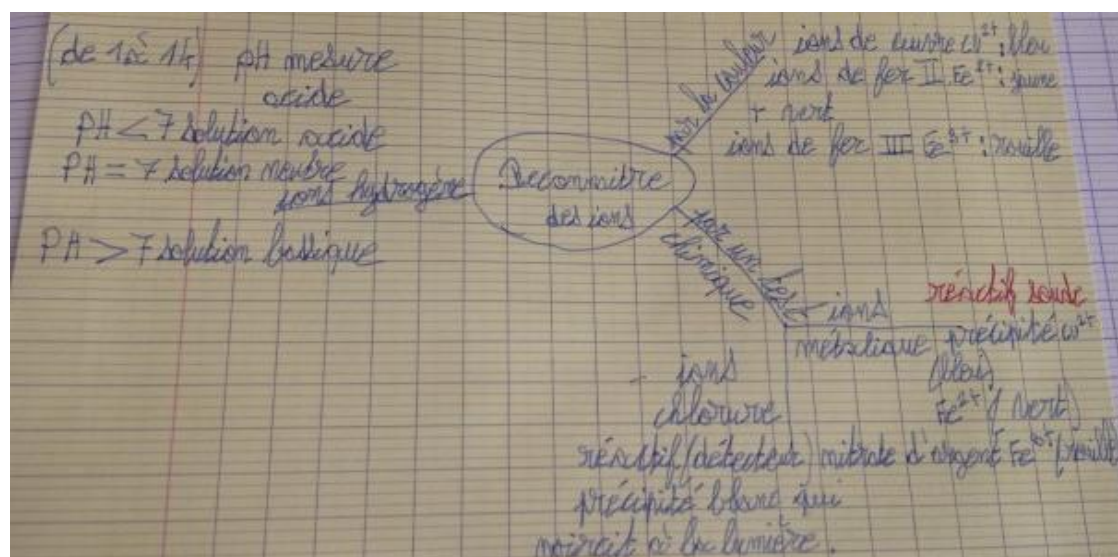 (de 1 à 14) pH mesure
acide
PH < 7 solution acide
PH = 7 solution neutre
ions hydrogène
PH > 7 solution bassique
Reconnaitre
des ions
par la couleur
ions de cuivre Cu²⁺ : bleu
ions de fer II Fe²⁺ : jaune
+ vert
ions de fer III Fe³⁺ : rouille
par un test
chimique
- ions
métalique
réactif soude
précipité Cu²⁺
(bleu)
Fe²⁺ (vert)
Fe³⁺ (rouille)
- ions
chlorure
réactif (détecteur) nitrate d'argent
précipité blanc qui
noircit à la lumière.